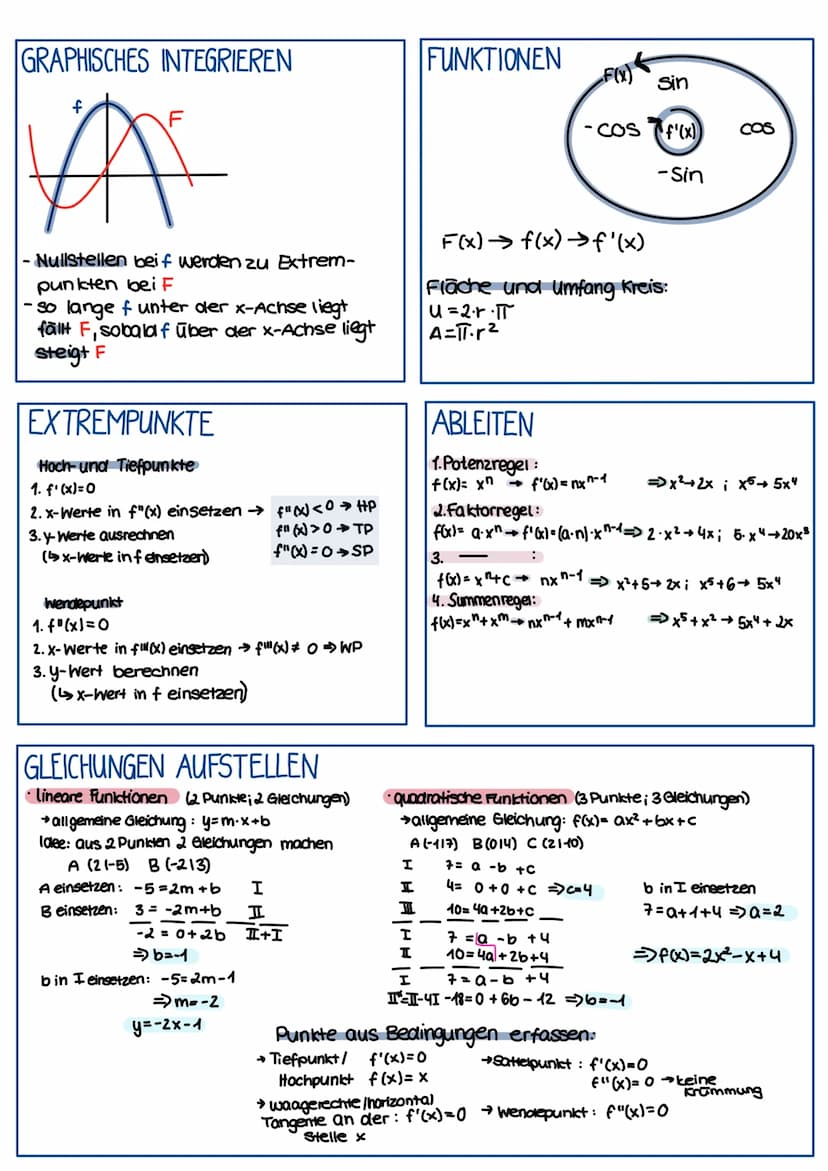 GRAPHISCHES INTEGRIEREN
f
F
- Nullstellen bei f werden zu Extrem-
punkten bei F
- so lange f unter der x-Achse liegt
fällt F, sobald f über der x-Achse liegt
steigt F
FUNKTIONEN
F(x)
sin
-cos
f'(x)
cos
-sin
F(x) → f(x) → f'(x)
Fläche und Umfang Kreis:
U = 2·r·π
A = π·r²
EXTREMPUNKTE
Hoch- und Tiefpunkte
1. f'(x)=0
2. x-Werte in f"(x) einsetzen →
3. y-Werte ausrechnen
(↳ x-Werte in f einsetzen)
f"(x) < 0 → HP
f"(x) > 0 → TP
f"(x) = 0 → SP
Wendepunkt
1. f"(x) = 0
2. x-Werte in f'''(x) einsetzen → f'''(x) ≠ 0 ⇒ WP
3. y-Wert berechnen
(↳ x-Wert in f einsetzen)
ABLEITEN
1. Potenzregel:
f(x)= xⁿ → f'(x) = nxⁿ⁻¹ ⇒ x² → 2x ; x⁵ → 5x⁴
2. Faktorregel:
f(x)= a·xⁿ → f'(x) = (a·n)·xⁿ⁻¹ ⇒ 2·x² → 4x ; 5·x⁴ → 20x³
3. — :
f(x) = xⁿ+c → nxⁿ⁻¹ ⇒ x²+5 → 2x ; x⁵+6 → 5x⁴
4. Summenregel:
f(x)=xⁿ+xᵐ → nxⁿ⁻¹ + mxⁿ⁻¹ ⇒ x⁵+x² → 5x⁴ + 2x
GLEICHUNGEN AUFSTELLEN
· lineare Funktionen (2 Punkte; 2 Gleichungen)
→ allgemeine Gleichung: y=m·x+b
Idee: aus 2 Punkten 2 Gleichungen machen
A (2|-5) B (-2|3)
A einsetzen: -5 = 2m + b I
B einsetzen: 3 = -2m+b II
-2 = 0 + 2b II+I
⇒ b=-1
b in I einsetzen: -5 = 2m - 1
⇒ m = -2
y = -2x - 1
· quadratische Funktionen (3 Punkte; 3 Gleichungen)
→ allgemeine Gleichung: f(x)= ax² + bx + c
A(-1|7) B(0|4) C(2|10)
I 7 = a - b + c
II 4 = 0 + 0 + c ⇒ c=4
III 10 = 4a + 2b + c
I 7 = a - b + 4
II 10 = 4a + 2b + 4
I 7 = a - b + 4
II*=II-4I -18 = 0 + 6b - 12 ⇒ b = -1
b in I einsetzen
7 = a + 1 + 4 ⇒ a = 2
⇒ f(x) = 2x² - x + 4
Punkte aus Bedingungen erfassen:
→ Tiefpunkt / f'(x)=0
Hochpunkt f(x) = x
→ waagerechte/horizontal
Tangente an der : f'(x)=0
Stelle x
→ Sattelpunkt : f'(x)=0
f"(x)= 0 → keine
Krümmung
→ Wendepunkt : f"(x)=0